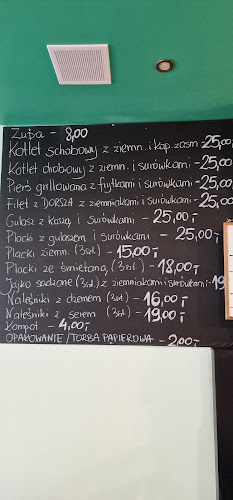 Zupa - 8,00
Kotlet schabowy z ziemn. i kap. zasm. 25,00,-
Kotlet drobiowy z ziemn. i surówkami - 25,00
Pierś grillowana z frytkami i surówkami - 25,00
Filet z DORSZA z ziemniakami i surówkami - 25,00
Gulasz z kaszą i surówkami - 25,00,-
Placki z gulaszem i surówkami - 25,00,-
Placki ziemn. (3szt.) - 15,00,-
Placki ze śmietaną, (3szt.) - 18,00,-
Jajko sadzone (3szt.) z ziemniakami i surówkami - 19
Naleśniki z dżemem (3szt.) - 16,00,-
Naleśniki z serem (3szt.) - 19,00,-
Kompot - 4,00,-
OPAKOWANIE/TORBA PAPIEROWA - 2,00,-